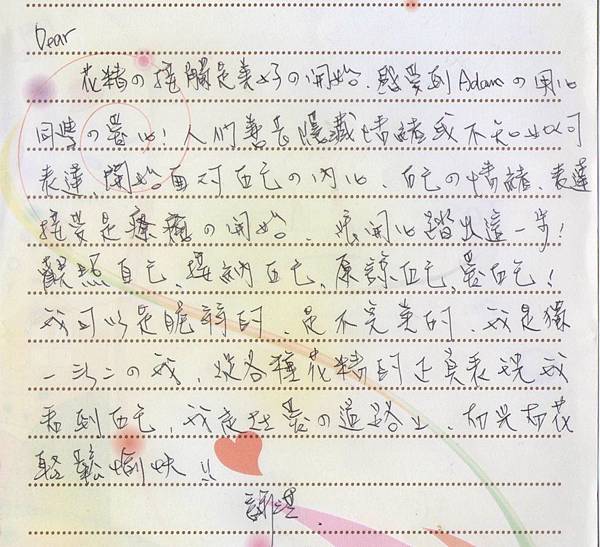 Dear
花精の接觸是美好の開始、感受到Adamの用心
同學の愛心!人們善於隱藏情緒或不知如何
表達、開始面對自己の內心、自己の情緒、表達
接受是療癒の開始、很開心踏出這一步!
觀照自己、接納自己、原諒自己、愛自己!
我可以是脆弱的、是不完美的、我是獨
一無二の我、從各種花精的正負表現我
看到自己,我走在愛の道路上、
輕鬆愉快!!